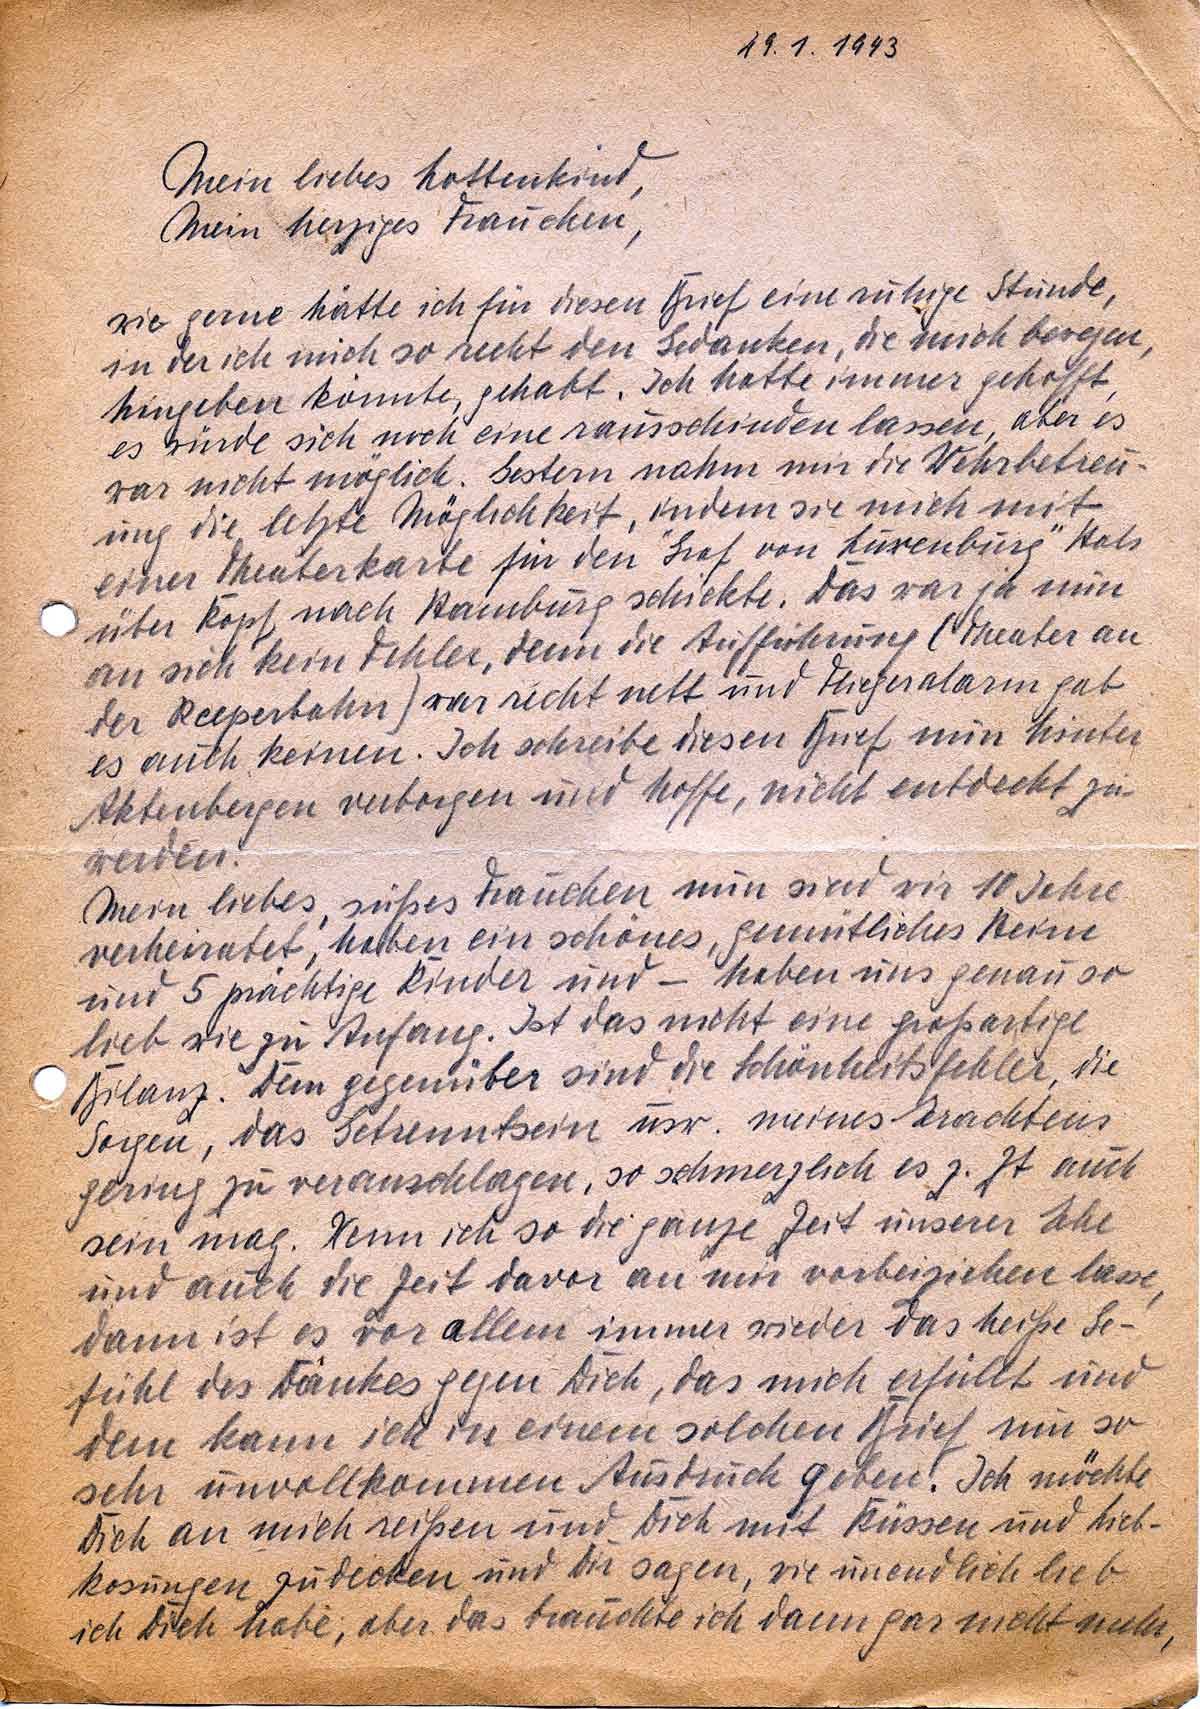 29.1.1943
Mein liebes Hottenkind,
Mein herziges Frauchen,
wie gerne hätte ich für diesen Brief eine ruhige Stunde,
in der ich mich so recht den Gedanken, die mich bewegen,
hingeben könnte, gehabt. Ich hatte immer gehofft,
es würde sich noch eine rausschinden lassen, aber es
war nicht möglich. Gestern nahm mir die Wehrbetreu-
ung die letzte Möglichkeit, indem sie mich mit
einer Theaterkarte für den "Graf von Luxenburg" Hals
über Kopf nach Hamburg schickte. Das war ja nun
an sich kein Fehler, denn die Aufführung (Theater an
der Reeperbahn) war recht nett und Fliegeralarm gab
es auch keinen. Ich schreibe diesen Brief nun hinter
Aktenbergen verborgen und hoffe, nicht entdeckt zu
werden.
Mein liebes, süßes Frauchen nun sind wir 10 Jahre
verheiratet, haben ein schönes, gemütliches Heim
und 5 prächtige Kinder und – haben uns genau so
lieb wie zu Anfang. Ist das nicht eine großartige
Bilanz. Dem gegenüber sind die Schönheitsfehler, die
Sorgen, das Getrenntsein usw. meines Erachtens
gering zu veranschlagen, so schmerzlich es z. Zt auch
sein mag. Wenn ich so die ganze Zeit unserer Ehe
und auch die Zeit davor an mir vorbeiziehen lasse,
dann ist es vor allem immer wieder das heiße Ge-
fühl des Dankes gegen Dich, das mich erfüllt und
dem kann ich in einem solchen Brief nur so
sehr unvollkommen Ausdruck geben. Ich möchte
Dich an mich reißen und Dich mit Küssen und Lieb-
kosungen zudecken und Dir sagen, wie unendlich lieb
ich Dich habe, aber das brauchte ich dann gar nicht mehr,